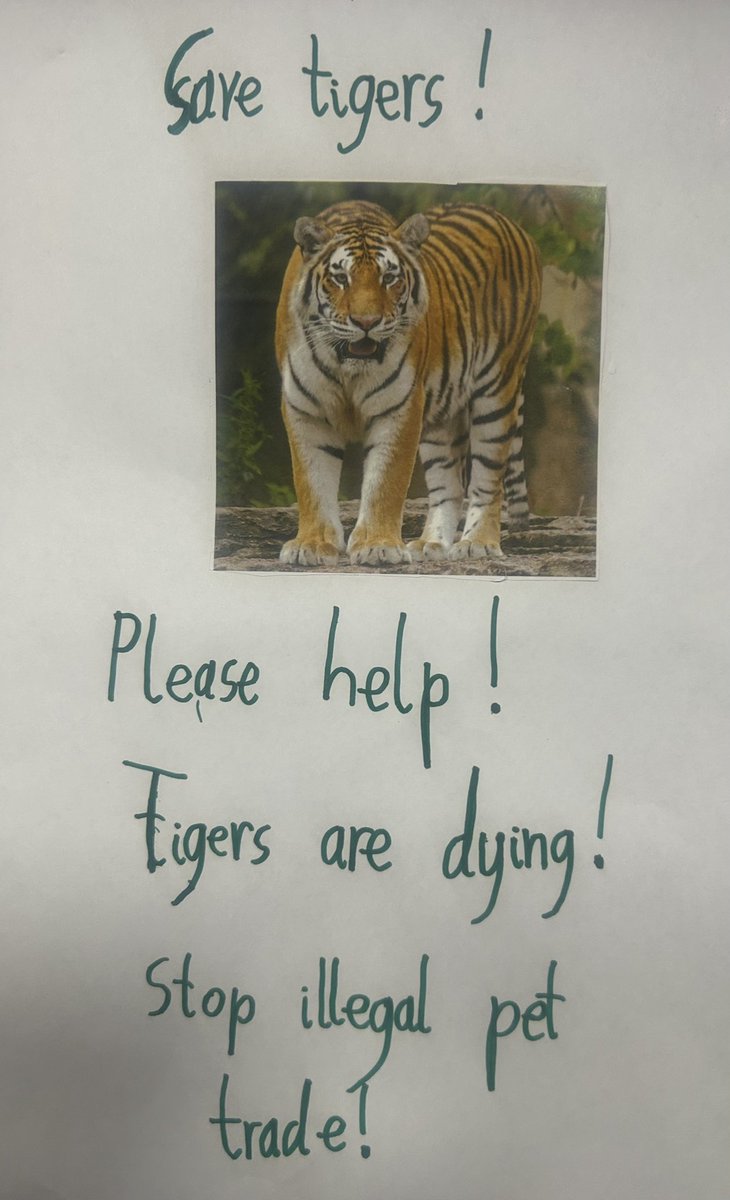 Save tigers!
Please help!
Tigers are dying!
Stop illegal pet
trade!